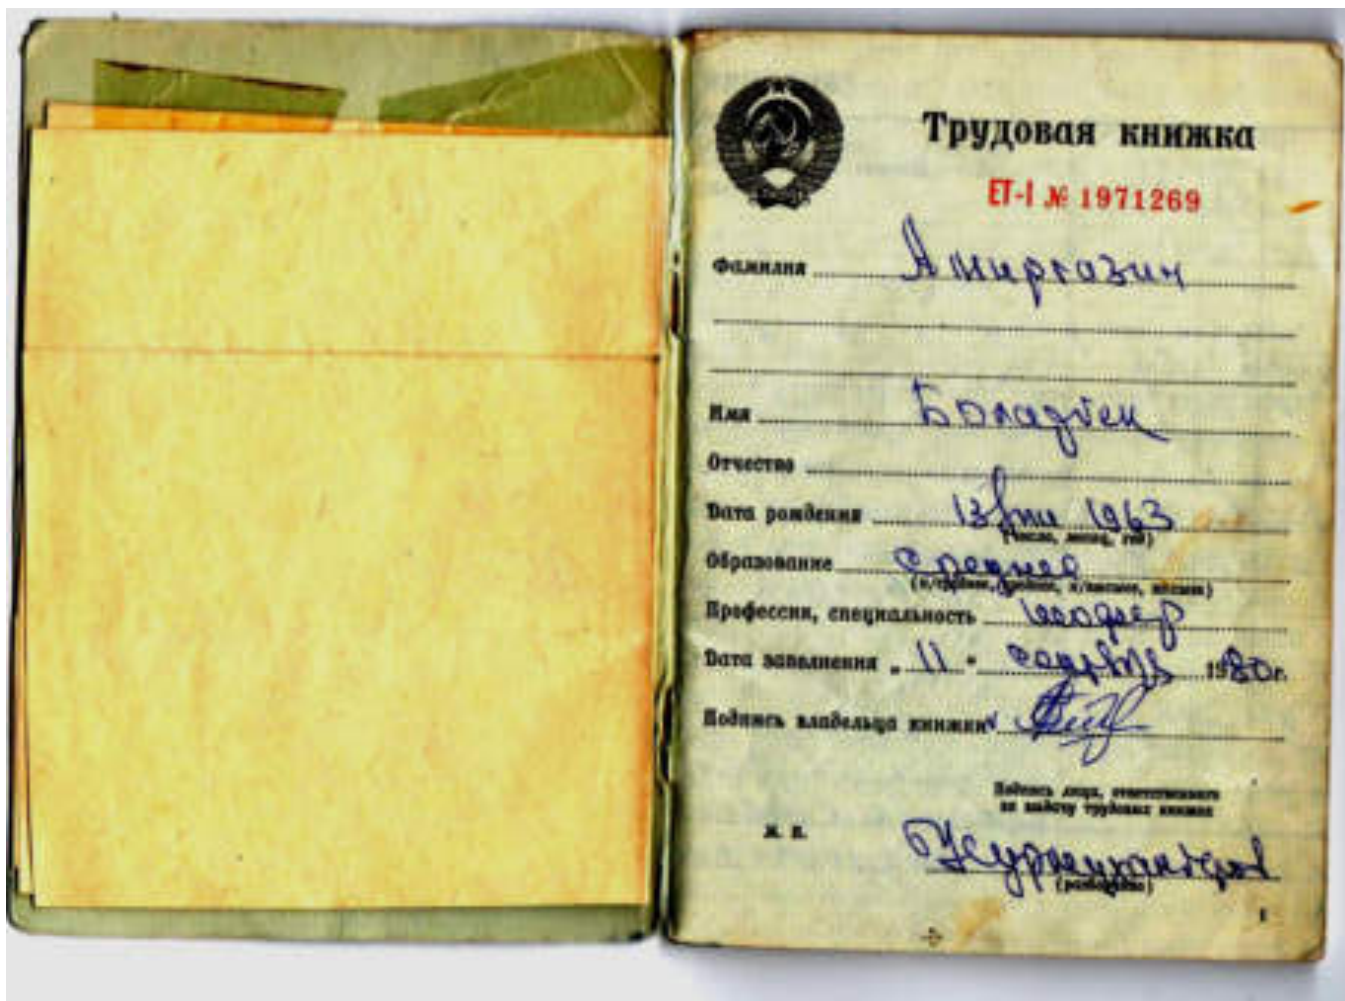 Трудовая книжка
ЕТ-I № 1971269
Фамилия Амиргазин
Имя Боладбек
Отчество
Дата рождения 13 1963
(число, месяц, год)
Образование среднее
(н/среднее, среднее, н/высшее, высшее)
Профессия, специальность шофер
Дата заполнения „ 11 " 1980г.
Подпись владельца книжки
Подпись лица, ответственного
за выдачу трудовых книжек
М. П.
(разборчиво)
1